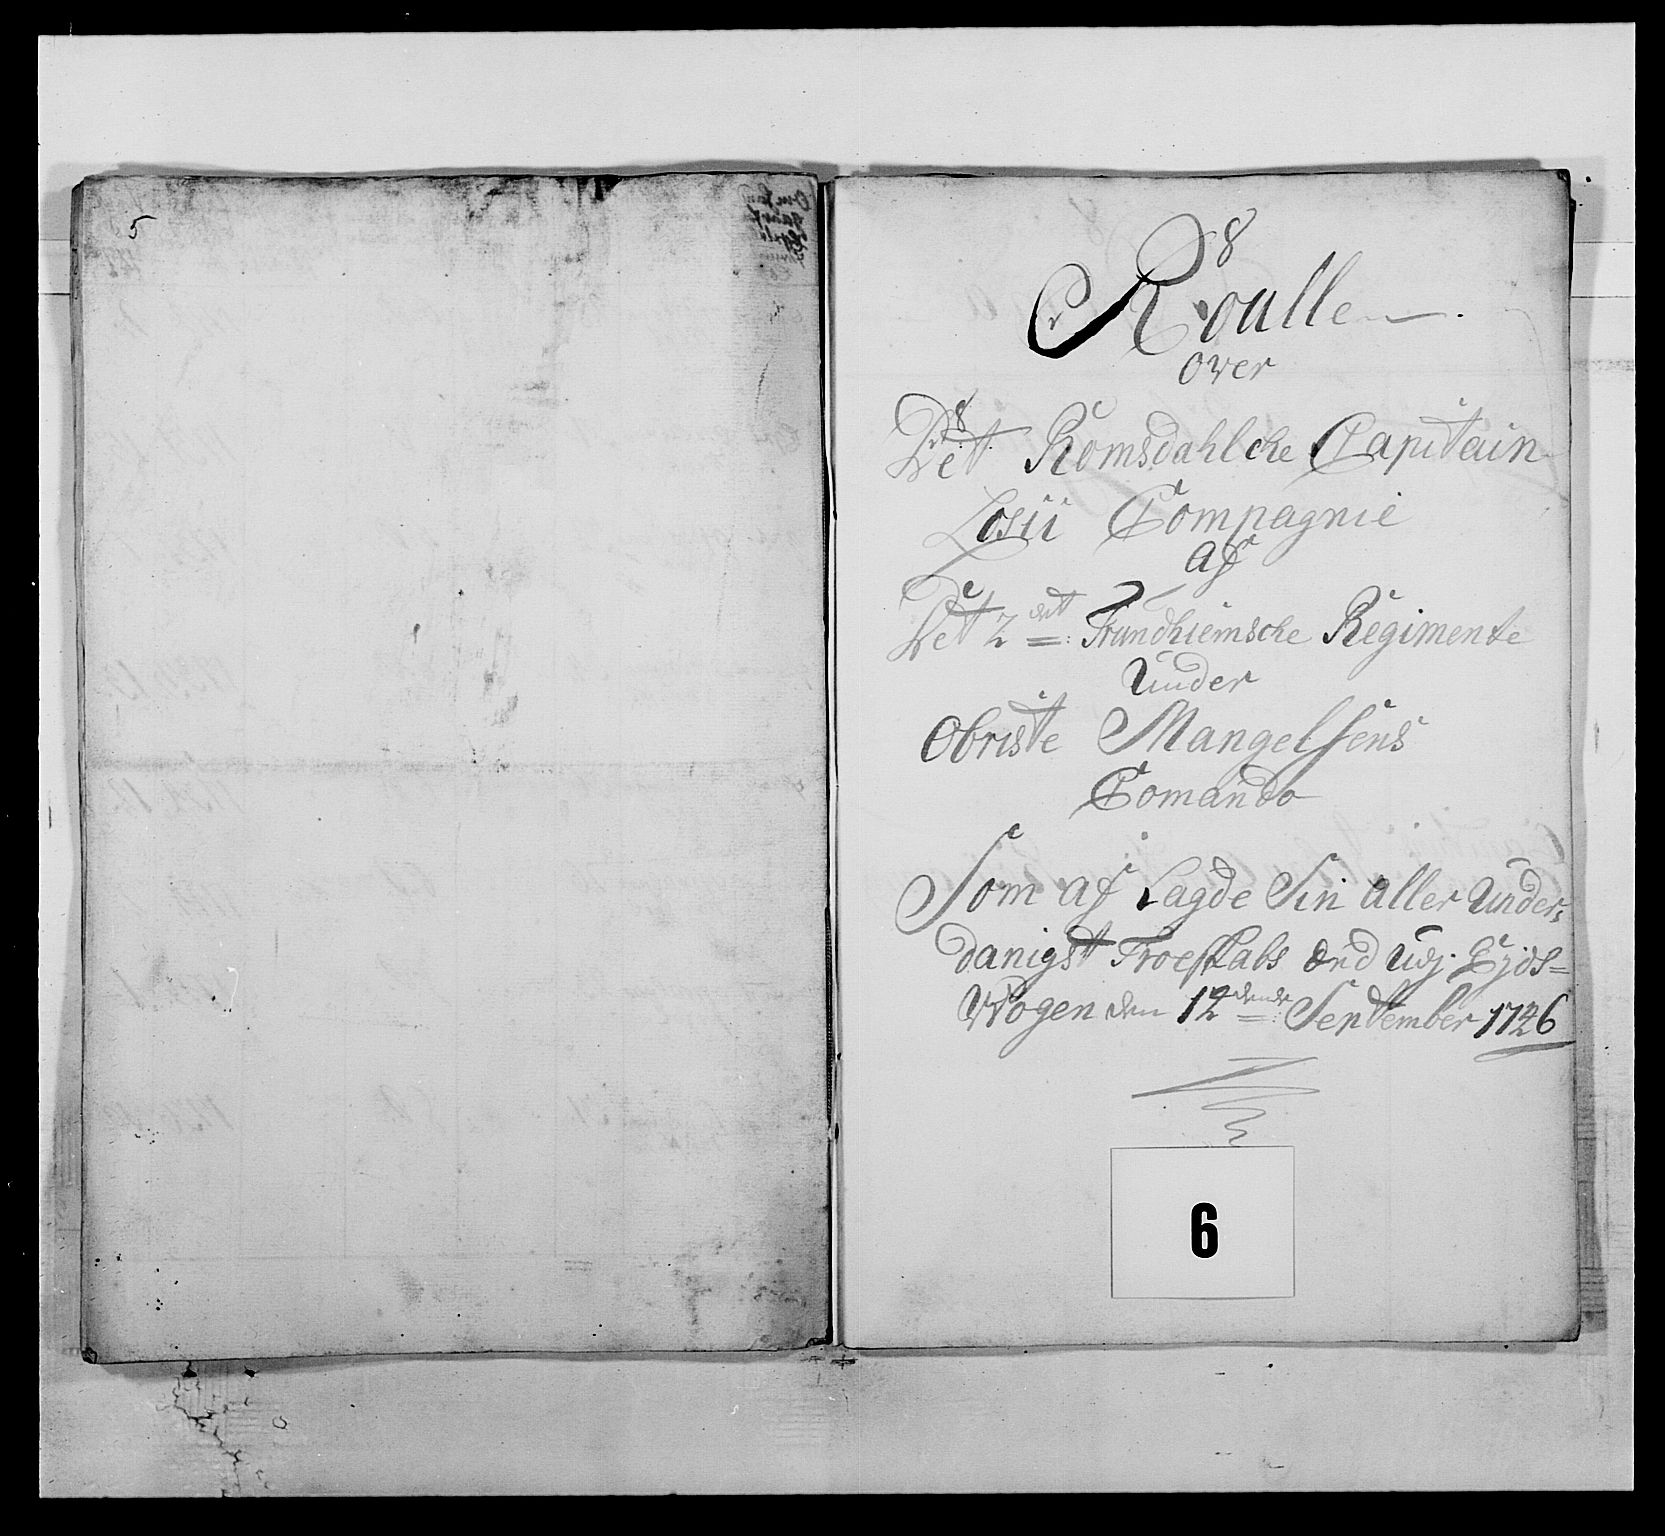 5
8
Roulle
over
8
Det Romsdahlche Capitain
Losii Compagnie
af
Det 2det Trundhiemsche Regimente
Under
Obriste Mangelsens
Comando
Som af Lagde Sin aller Under=
danigst Troeskabs Eed udj Eyds=
Wogen den 12dende September 1746
6